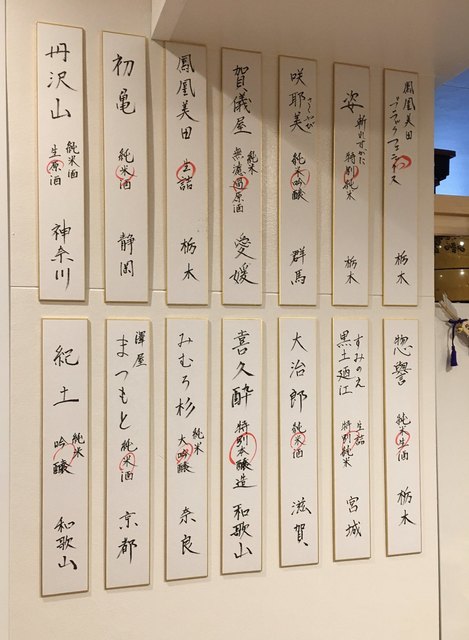 鳳凰美田
ブラックフェニックス
栃木
姿
斬れすがた
特別純米
栃木
咲耶美
さくやび
純米吟醸
群馬
賀儀屋
純米
無濾過原酒
愛媛
鳳凰美田
生詰
栃木
初亀
純米酒
静岡
丹沢山
純米酒
生原酒
神奈川
惣誉
純米生酒
栃木
すみのえ
黒土廻江
生詰
特別純米
宮城
大治郎
純米酒
滋賀
喜久酔
特別本醸造
和歌山
みむろ杉
純米
大吟醸
奈良
澤屋
まつもと
純米酒
京都
紀土
純米
吟醸
和歌山